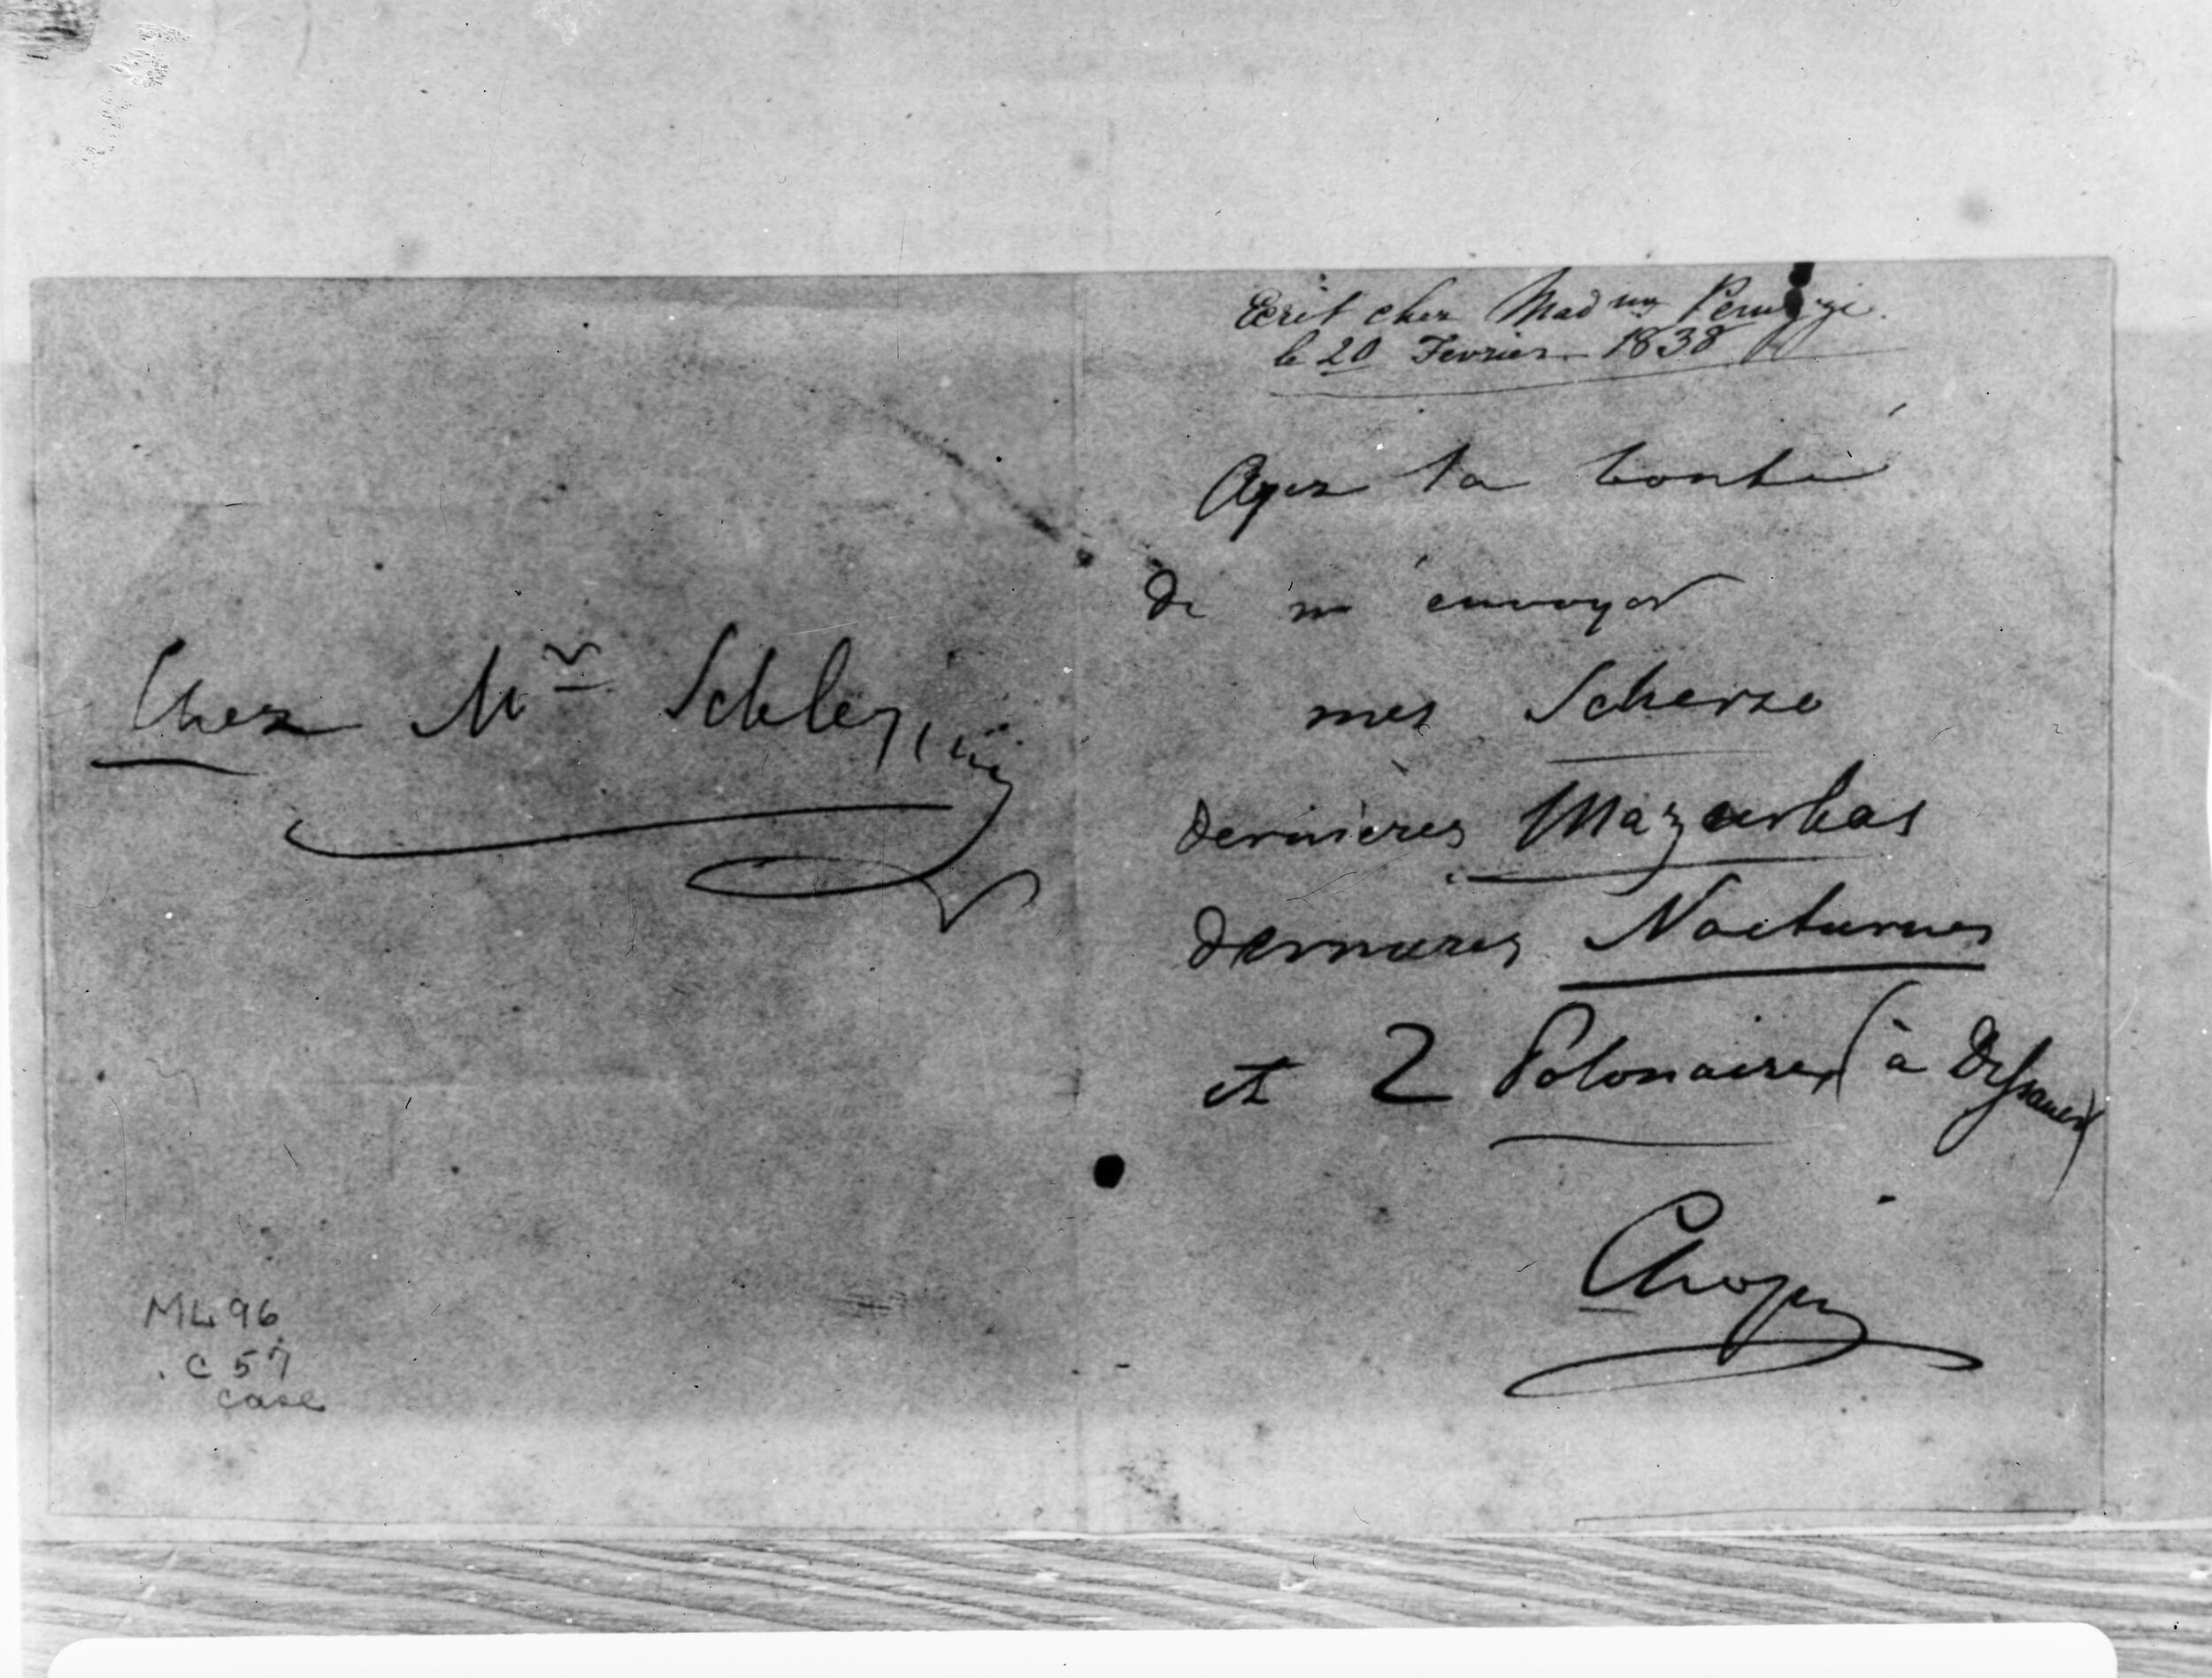 Chez Mr Schlesing
ML 96
.C 57
case
Ecrit chez Mad
le 20 Fevrier 1838
Ayez la bonté
de m'envoyer
mes Scherzo
dernières Mazurkas
dernieres Nocturnes
et 2 Polonaises (à Dessauer)
Chopin